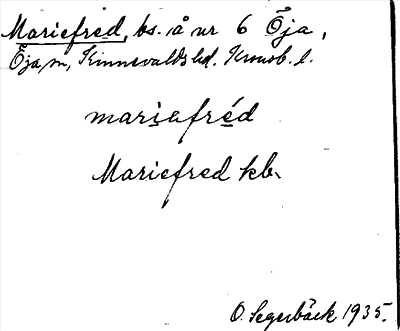 Mariefred, bs. å nr 6 Öja,
Öja sn, Kinnevalds hd. Kronob. l.
mari̱a̱fré̱d
Mariefred kb.
O. Segerbäck 1935.